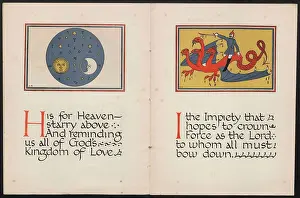 H is for Heaven—
starry above
And reminding
us all of God's
Kingdom of Love.
I the Impiety that
hopes to crown
Force as the Lord
to whom all must
bow down.